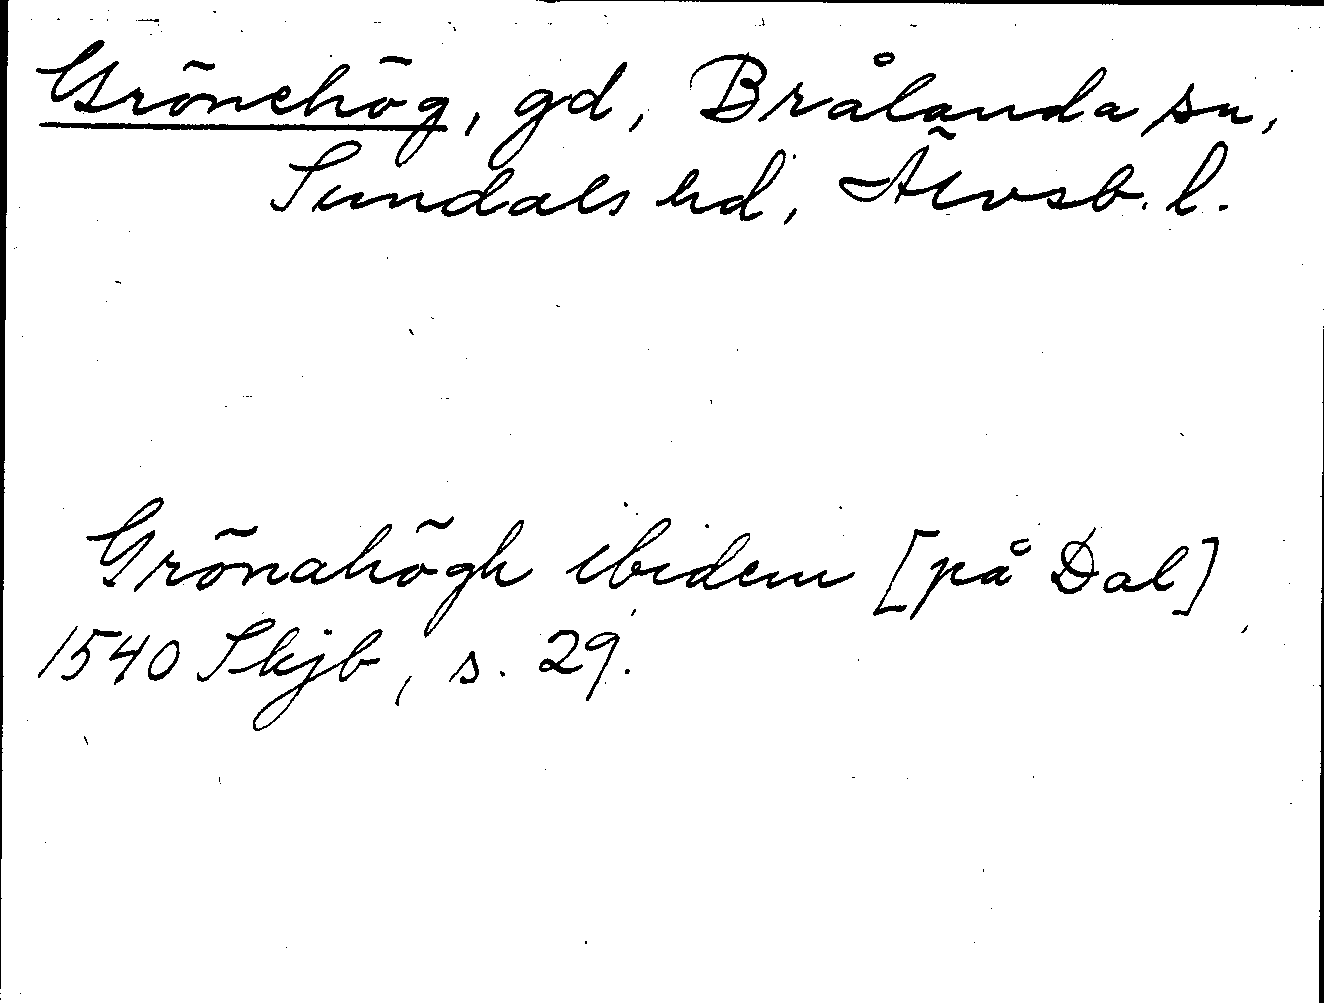 Grönehög, gd, Brålanda sn,
Sundals hd, Älvsb. l.
Grönahögh ibidem [på Dal]
1540 Skjb, s. 29.